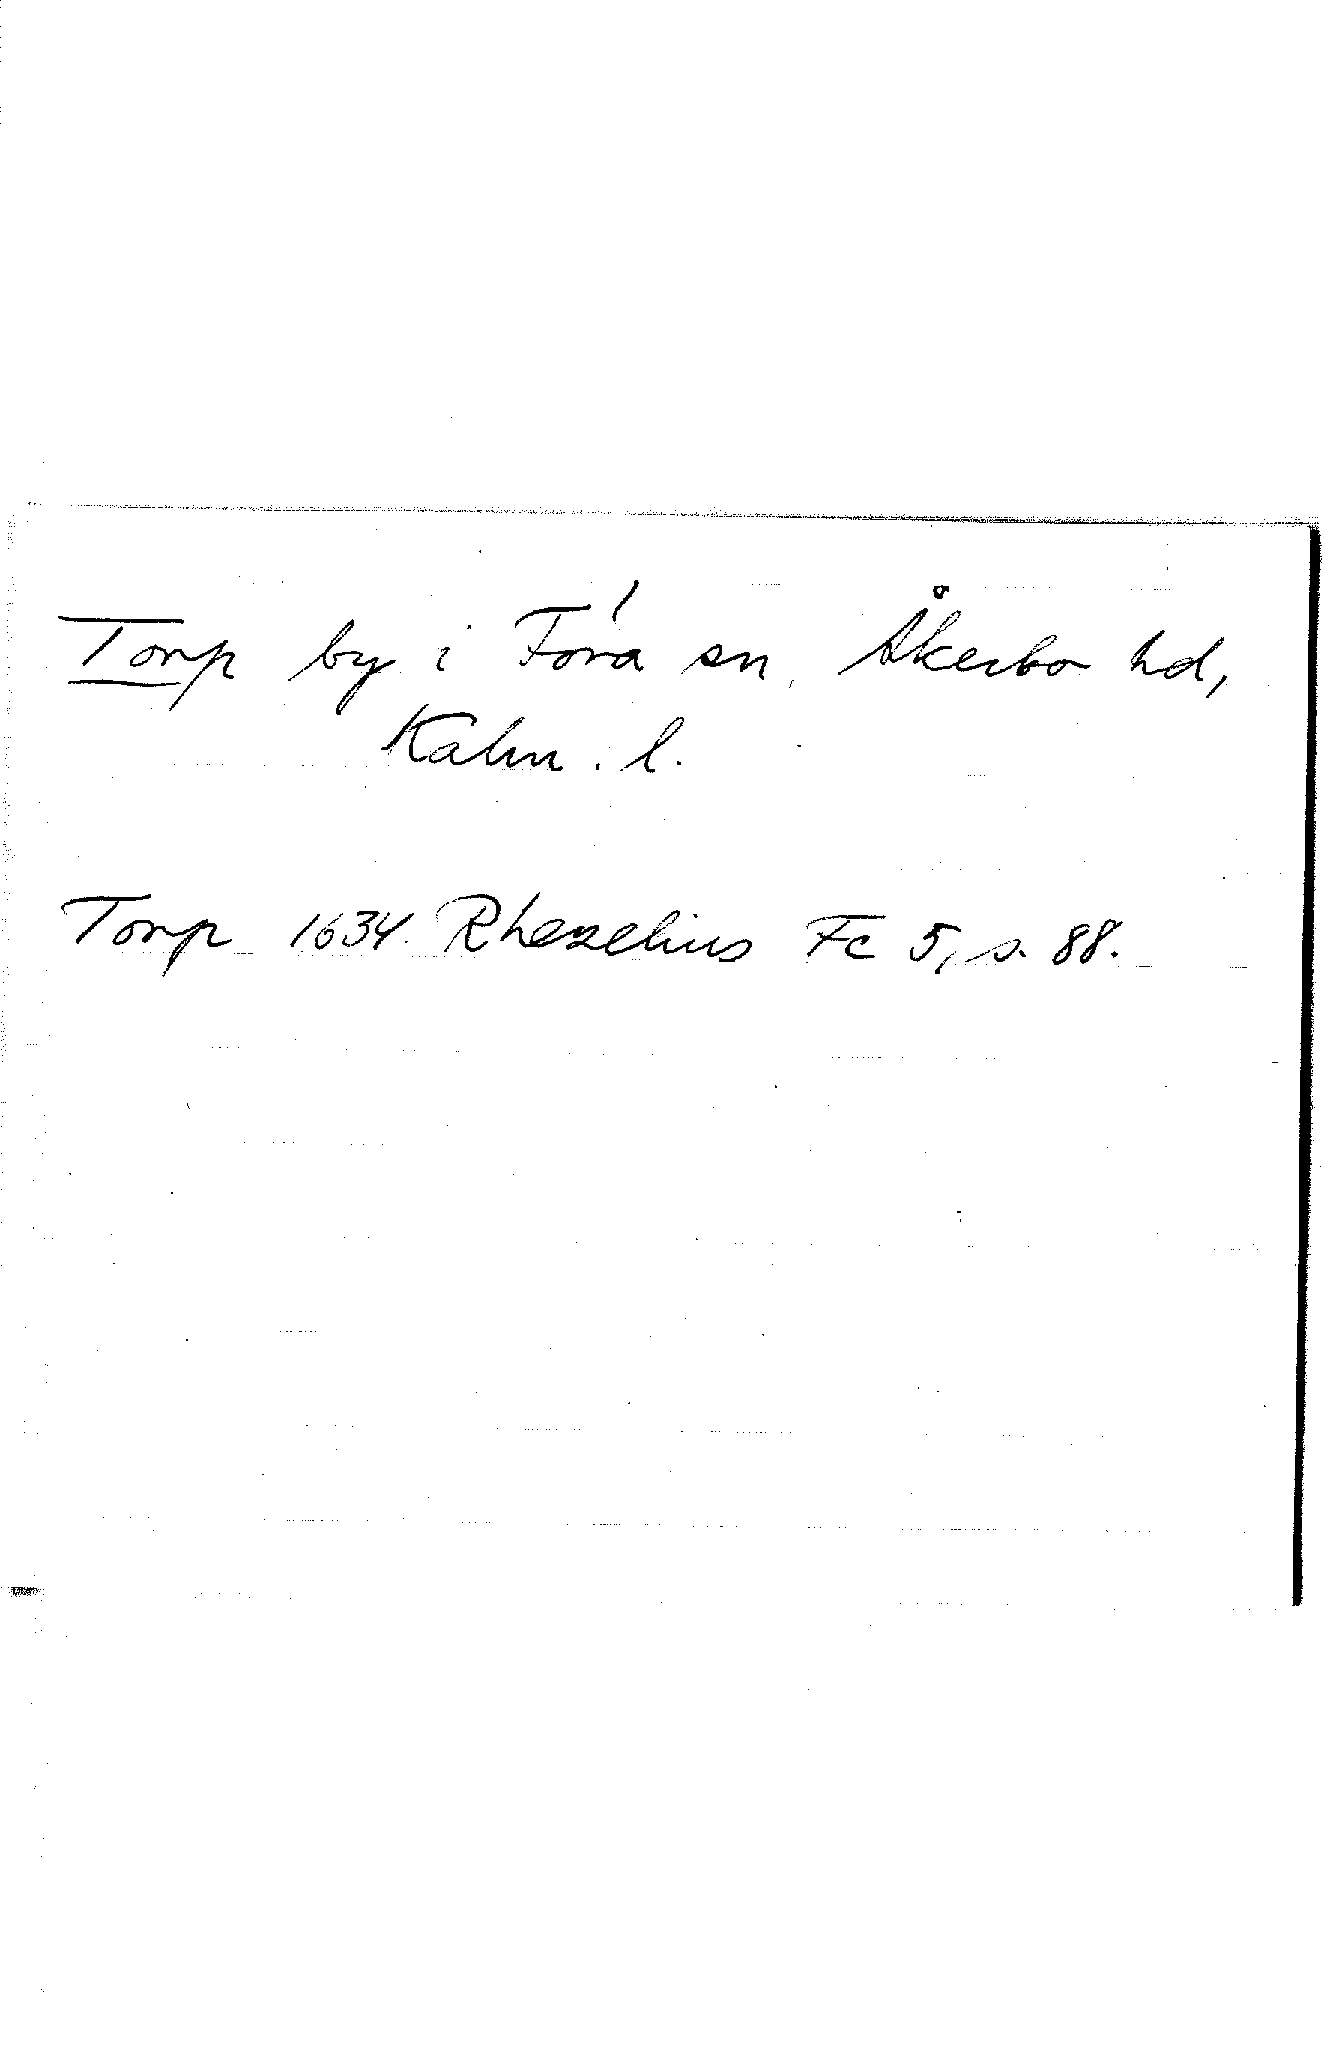 Torp by i Föra sn, Åkerbo hd,
Kalm. l.
Torp 1634 Rhezelius Fc 5, s. 88.